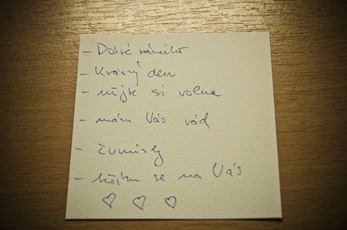 - Dobré ránko
- Krásný den
- užijte si volna
- mám Vás rád
- čumisly
- těším se na Vás